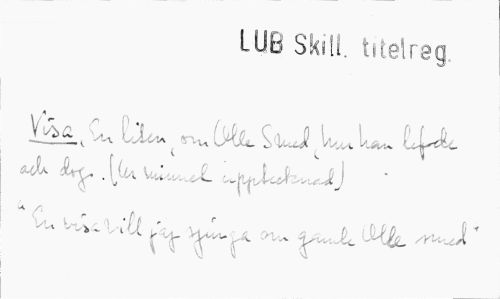 LUB Skill. titelreg.
Visa, En liten, om Olle Smed, hur han lefode
och dog. (Ur minnet upptecknad)
"En visa vill jag sjunga om gamle Olle smed"